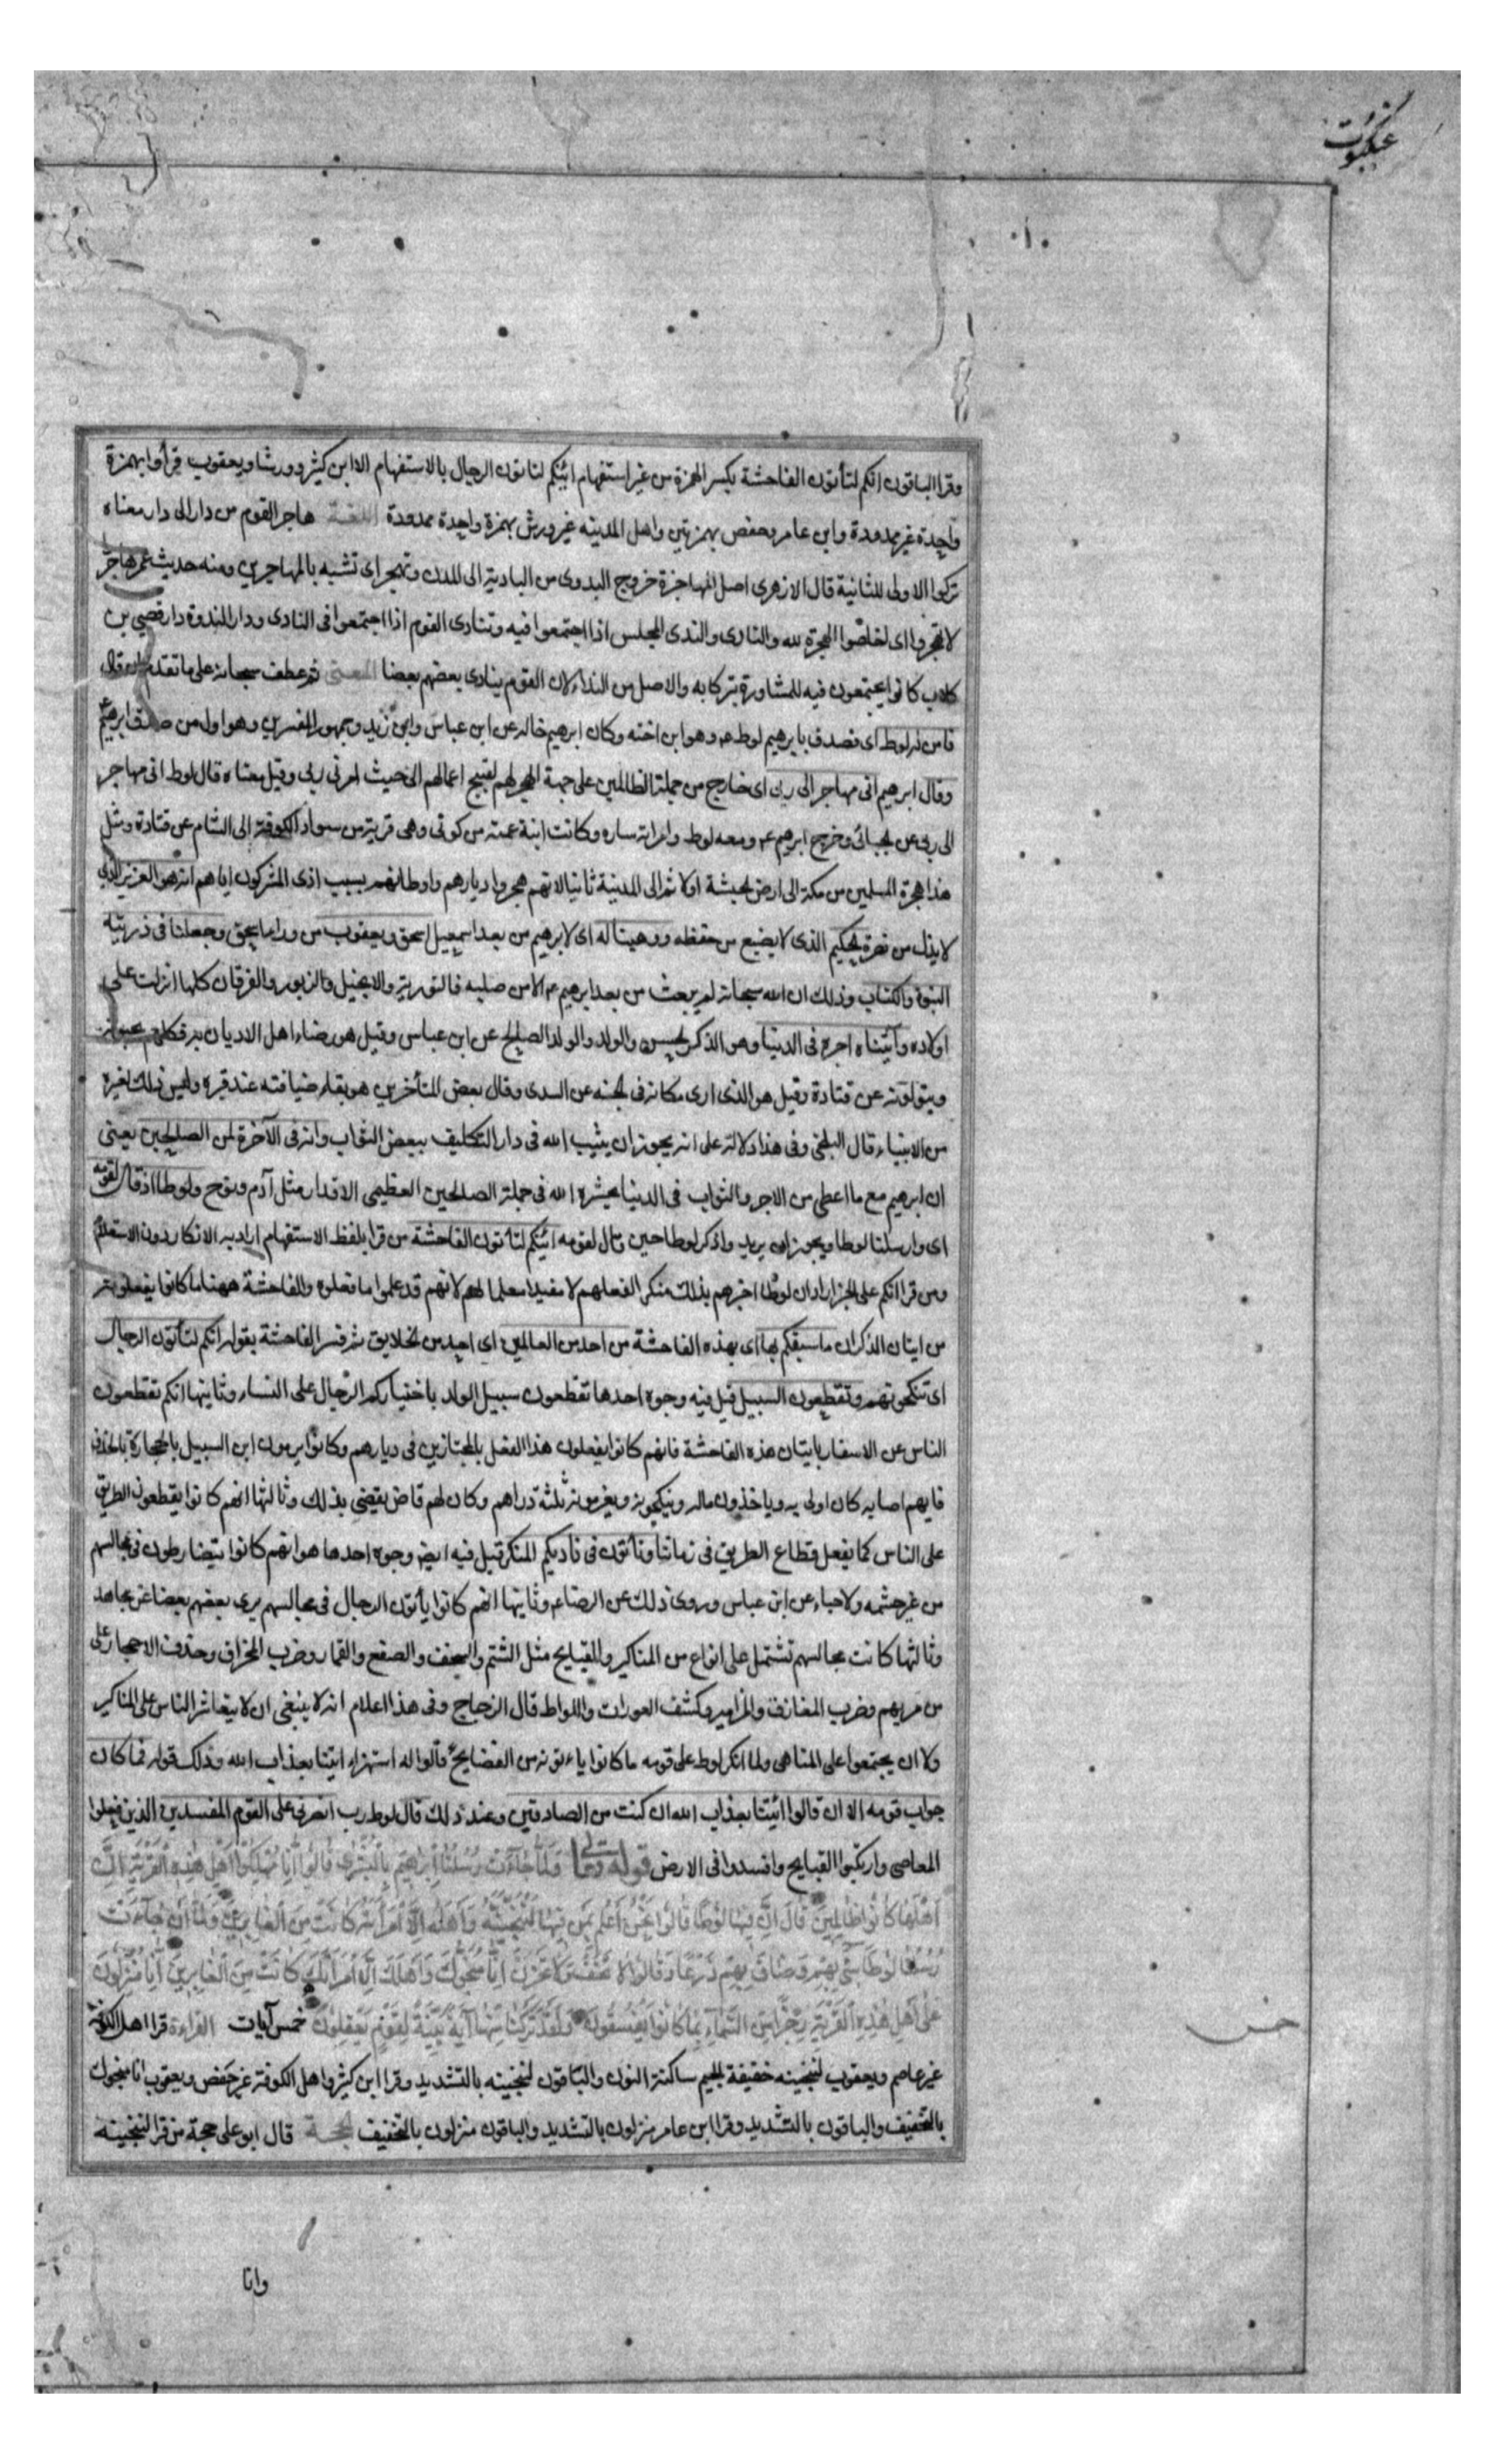 عنكبوت
وقرا الباقون انكم لتأتون الفاحشة بكسر الهمزة من غير استفهام ائنكم لتاتون الرجال بالاستفهام الا ابن كثير وورشا ويعقوب قرأوا بهمزة
واحدة غير ممدودة وابن عامر وحفص بهمزتين واهل المدينه غير ورش بهمزة واحدة ممدودة اللغة هاجر القوم من دار الى دار معناه
تركوا الاولى للثانية قال الازهرى اصل المهاجرة خروج البدوى من البادية الى المدن وتهجر اى تشبه بالمهاجرين ومنه حديث عمر هاجروا
لا تهجروا اى اخلصوا الهجرة لله والنادى والندى المجلس اذا اجتمعوا فيه وتنادى القوم اذا اجتمعوا فى النادى ودار الندوة دار قصي بن
كلاب كانوا يجتمعون فيه للمشاورة بتركا به والاصل من النداء لان القوم ينادى بعضهم بعضا المعنى ثم عطف سبحانه على ما تقدم فقال
فامن له لوط اى فصدق بابرهيم لوط ع وهو ابن اخته وكان ابرهيم خاله عن ابن عباس وابن زيد وجمهور المفسرين وهو اول من صدق ابرهيم ع
وقال ابرهيم انى مهاجر الى ربى اى خارج من جملة الظالمين على جهة الهجر لهم لقبيح اعمالهم الى حيث امرنى ربى وقيل معناه قال لوط انى مهاجر
الى ربى عن الجبائى وخرج ابرهيم ع ومعه لوط وامراته ساره وكانت ابنة عمته من كوثى وهى قرية من سواد الكوفة الى الشام عن قتادة ومثل
هذا هجرة المسلمين من مكة الى ارض الحبشة اولا ثم الى المدينة ثانيا لانهم هجروا ديارهم واوطانهم بسبب اذى المشركون اياهم انه هو العزيز الذى
لا يذل من نصره الحكيم الذى لا يضيع من حفظه ووهبنا له اى لابرهيم من بعد اسمعيل اسحق ويعقوب من وراء اسحق وجعلنا فى ذريته
النبوة والكتاب وذلك ان الله سبحانه لم يبعث من بعد ابرهيم ع الا من صلبه فالتورية والانجيل والزبور والفرقان كلها انزلت على
اولاده وآتيناه اجره فى الدنيا وهو الذكر الحسن والولد والولد الصالح عن ابن عباس وقيل هو رضاء اهل الاديان به فكلهم يحبونه
ويتولونه عن قتادة وقيل هو الذى ارى مكانه فى الجنه عن السدى وقال بعض المتأخرين هو بقاء ضيافته عند قبره وليس ذلك لغيره
من الانبياء قال البلخى وفى هذا دلالة على انه يجوز ان يثيب الله فى دار التكليف ببعض الثواب وانه فى الآخرة لمن الصالحين يعنى
ان ابرهيم مع ما اعطى من الاجر والثواب فى الدنيا يحشره الله فى جملة الصالحين العظيمى الاقدار مثل آدم ونوح ولوطا اذ قال لقومه
اى وارسلنا لوطا ويجوز ان يريد واذكر لوطا حين قال لقومه ائنكم لتأتون الفاحشة من قرا بلفظ الاستفهام اراد به الانكار دون الاستعلام
ومن قرا انكم على الخبر اراد ان لوطا اخبرهم بذلك منكرا لفعلهم لا مفيدا معلما لهم لانهم قد علموا ما فعلوه والفاحشة ههنا ما كانوا يفعلونه
من اتيان الذكران ما سبقكم بها اى بهذه الفاحشة من احد من العالمين اى احد من الخلايق ثم فسر الفاحشة بقوله ائنكم لتأتون الرجال
اى تنكحونهم وتقطعون السبيل قيل فيه وجوه احدها تقطعون سبيل الولد باختياركم الرجال على النساء وثانيها انكم تقطعون
الناس عن الاسفار باتيان هذه الفاحشة فانهم كانوا يفعلون هذا الفعل بالمجتازين فى ديارهم وكانوا يرمون ابن السبيل بالحجارة بالخذف
فايهم اصابه كان اولى به وياخذون ماله وينكحونه ويغرمونه ثلثة دراهم وكان لهم قاض يقضى بذلك وثالثها انهم كانوا يقطعون الطريق
على الناس كما يفعل قطاع الطريق فى زماننا وتأتون فى ناديكم المنكر قيل فيه ايضا وجوه احدها هو انهم كانوا يتضارطون فى مجالسهم
من غير حشمه ولا حياء عن ابن عباس وروى ذلك عن الرضا ع وثانيها انهم كانوا يأتون الرجال فى مجالسهم يرى بعضهم بعضا عن مجاهد
وثالثها كانت مجالسهم تشتمل على انواع من المناكير والقبايح مثل الشتم والسخف والصفع والقمار وضرب المخراق وحذف الاحجار على
من مر بهم وضرب المعازف والمزامير وكشف العورات واللواط قال الزجاج وفى هذا اعلام انه لا ينبغى ان لا يتعاشر الناس على المناكير
ولا ان يجتمعوا على المناهى ولما انكر لوط على قومه ما كانوا ياءتونه من الفضايح قالوا له استهزاء ايتنا بعذاب الله وذلك قوله فما كان
جواب قومه الا ان قالوا ائتنا بعذاب الله ان كنت من الصادقين وعند ذلك قال لوط رب انصرنى على القوم المفسدين الذين فعلوا
المعاصى وارتكبوا القبايح وافسدوا فى الارض قوله تعالى وَلَمَّا جَاءَت رُسُلُنَا اِبْرٰهِيمَ بِالْبُشْرٰى قَالُوا اِنَّا مُهْلِكُوا اَهْلِ هٰذِهِ الْقَرْيَةِ اِنَّ
اَهْلَهَا كَانُوا ظَالِمِينَ قَالَ اِنَّ فِيهَا لُوطًا قَالُوا نَحْنُ اَعْلَمُ بِمَن فِيهَا لَنُنَجِّيَنَّهُ وَاَهْلَهُ اِلَّا امْرَاَتَهُ كَانَتْ مِنَ الغَابِرِينَ وَلَمَّا اَنْ جَاءَت
رُسُلُنَا لُوطًا سِيءَ بِهِمْ وَضَاقَ بِهِمْ ذَرْعًا وَقَالُوا لَا تَخَفْ وَلَا تَحْزَنْ اِنَّا مُنَجُّوكَ وَاَهْلَكَ اِلَّا امْرَاَتَكَ كَانَتْ مِنَ الْغَابِرِينَ اِنَّا مُنْزِلُونَ
عَلٰى اَهْلِ هٰذِهِ الْقَرْيَةِ رِجْزًا مِنَ السَّمَاءِ بِمَا كَانُوا يَفْسُقُونَ وَلَقَدْ تَرَكْنَا مِنْهَا آيَةً بَيِّنَةً لِقَوْمٍ يَعْقِلُونَ خمس آيات القراءة قرا اهل الكوفة
خمس
غير عاصم ويعقوب لننجينه خفيفة الجيم ساكنة النون والباقون لننجينه بالتشديد وقرا ابن كثير واهل الكوفة غير حفص ويعقوب انا منجوك
بالتخفيف والباقون بالتشديد وقرا ابن عامر منزلون بالتشديد والباقون منزلون بالتخفيف الحجة قال ابو على حجة من قرا لننجينه
وانا